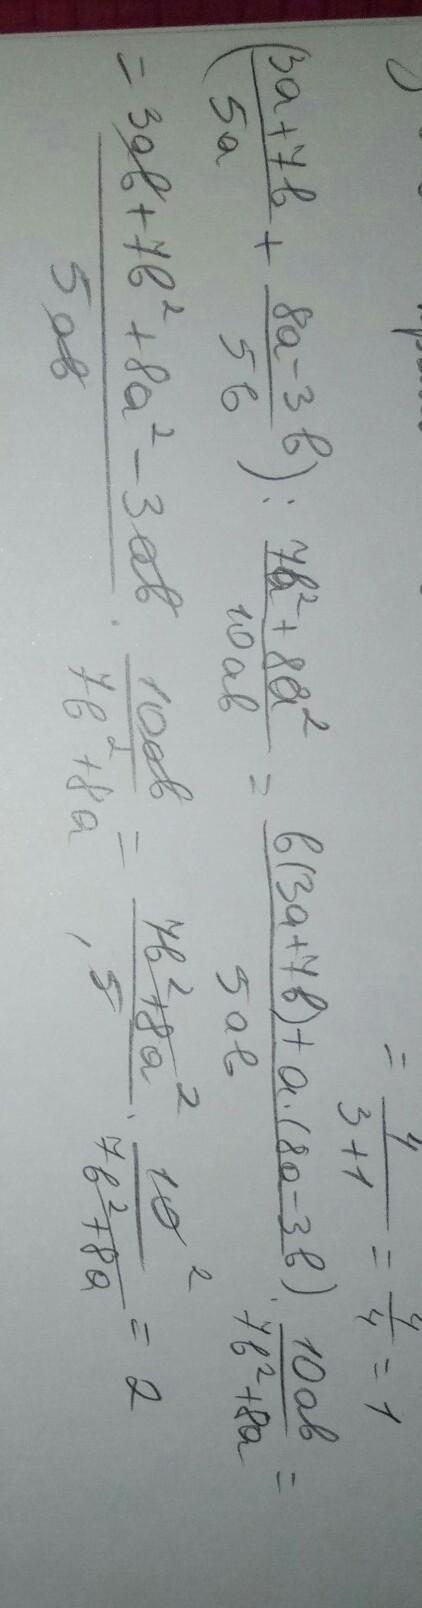 = 4/(3+1) = 4/4 = 1
((3a+7b)/(5a) + (8a-3b)/(5b)) : (7b²+8a²)/(10ab) = (b(3a+7b)+a·(8a-3b))/(5ab) · (10ab)/(7b²+8a) =
= (3ab+7b²+8a²-3ab)/(5ab) · (10ab)/(7b²+8a) = (7b²+8a²)/5 · (10 ²)/(7b²+8a) = 2